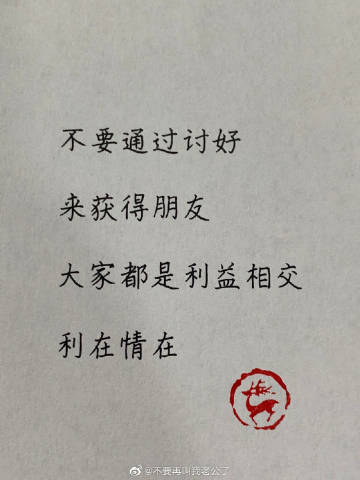 不要通过讨好
来获得朋友
大家都是利益相交
利在情在
@不要再叫我老公了